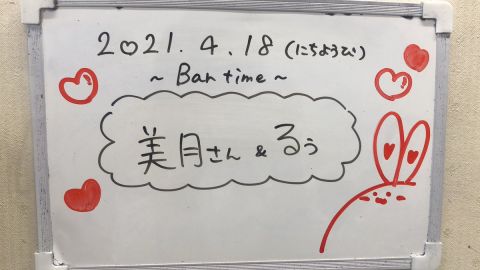 2021.4.18 (にちようび)
~ Bar time ~
美月さん & るぅ